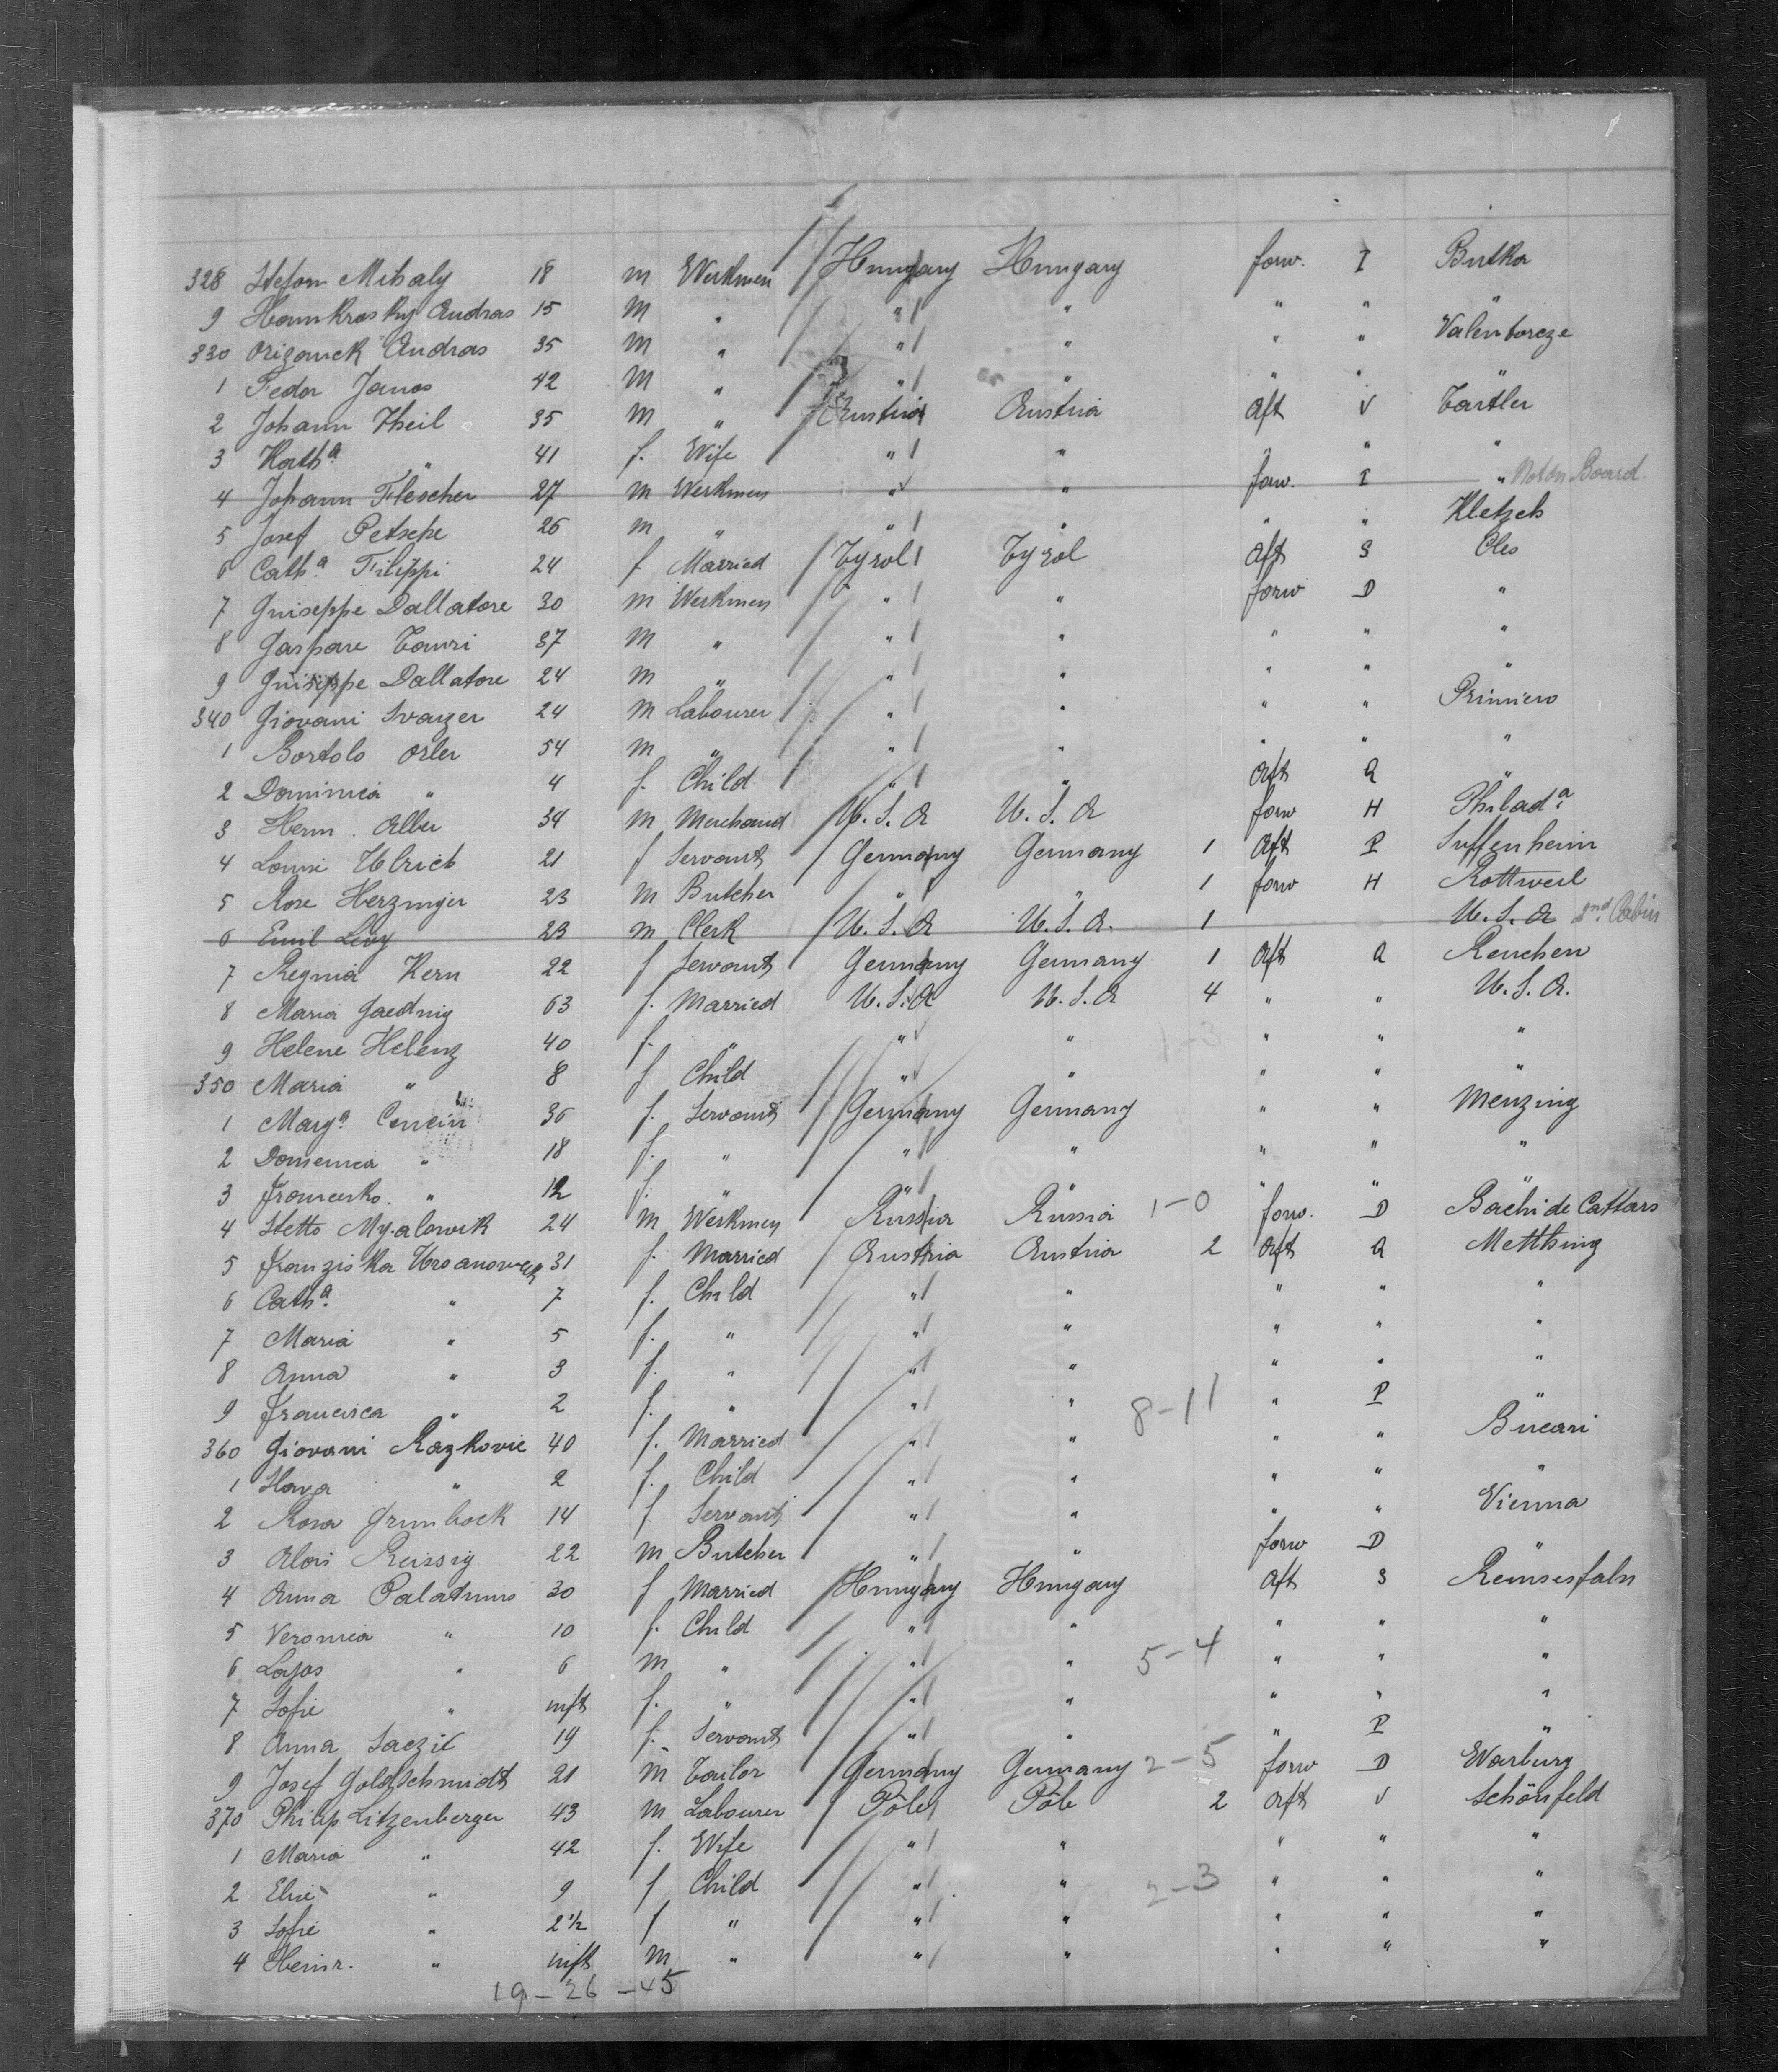 328 Stefan Mihaly 18 m Werkmen Hungary Hungary forw. I Butka
9 Hamkrasky Andras 15 m " " " " " "
330 Orizanck Andras 35 m " " " " " Valentoreze
1 Fedor Janos 42 m " " " " " "
2 Johann Theil 35 m " Austria Austria Aft V Tartler
3 Kath.a " 41 f. Wife " " " " "
4 Johann Flescher 27 m Werkmen " " forw. I " Not on Board
5 Josef Petsche 26 m " " " " " Kletzch
6 Cath.a Filippi 24 f Married Tyrol Tyrol Aft S Cles
7 Guiseppe Dallatore 30 m Werkmen " " forw D "
8 Gaspare Tauri 37 m " " " " " "
9 Guiseppe Dallatore 24 m " " " " " "
340 Giovani Svaizer 24 m Labourer " " " " Primiero
1 Bortolo Orler 54 m " " " " " "
2 Dominica " 4 f. Child " " Aft Q "
3 Herm. Alber 34 m Merchand U.S.A U.S.A forw H Philad.a
4 Louise Ulrich 21 f Servant Germany Germany 1 Aft P Suffenheim
5 Rose Herzinger 23 m Butcher " " 1 forw H Rottweil
6 Emil Levy 23 m Clerk U.S.A U.S.A. 1 U.S.A 2nd Cabin
7 Regina Kern 22 f Servant Germany Germany 1 Aft Q Renchen
8 Maria Gaednig 63 f. Married U.S.A U.S.A 4 " " U.S.A.
9 Helene Helenz 40 f. " " " 1-3 " " "
350 Maria " 8 f Child " " " " "
1 Marg.a Cenein 36 f. Servant Germany Germany " " Menzing
2 Domenica " 18 f. " " " " " "
3 Francesko. " 12 f. " " " " " "
4 Stetto Myalowik 24 m Werkmen Russia Russia 1-0 forw. D Bachi de Cattars
5 Franziska Uroanovach 31 f. Married Austria Austria 2 Aft Q Mettling
6 Cath.a " 7 f. Child " " " " "
7 Maria " 5 f. " " " " " "
8 Anna " 3 f. " " " " " "
9 Francisca " 2 f. " " " 8-11 " P "
360 Giovani Razkovic 40 f. Married " " " " Bucari
1 Slava " 2 f. Child " " " " "
2 Rosa Grunbock 14 f Servant " " " " Vienna
3 Alois Reissig 22 m Butcher " " forw D "
4 Anna Paladinus 30 f Married Hungary Hungary Aft S Remsesfaln
5 Veronica " 10 f. Child " " " " "
6 Lajos " 6 m " " " 5-4 " " "
7 Sofie " inft f. " " " " " "
8 Anna Saczik 19 f. Servant " " " P "
9 Josef Goldschmidt 21 m Tailor Germany Germany 2-5 forw D Warburg
370 Philip Litzenberger 43 m Labourer Pole Pole 2 Aft V Schönfeld
1 Maria " 42 f. Wife " " " " "
2 Elise " 9 f Child " " 2-3 " " "
3 Sofie " 2 1/2 f " " " " " "
4 Heinr. " inft m " " " " " "
19-26-45